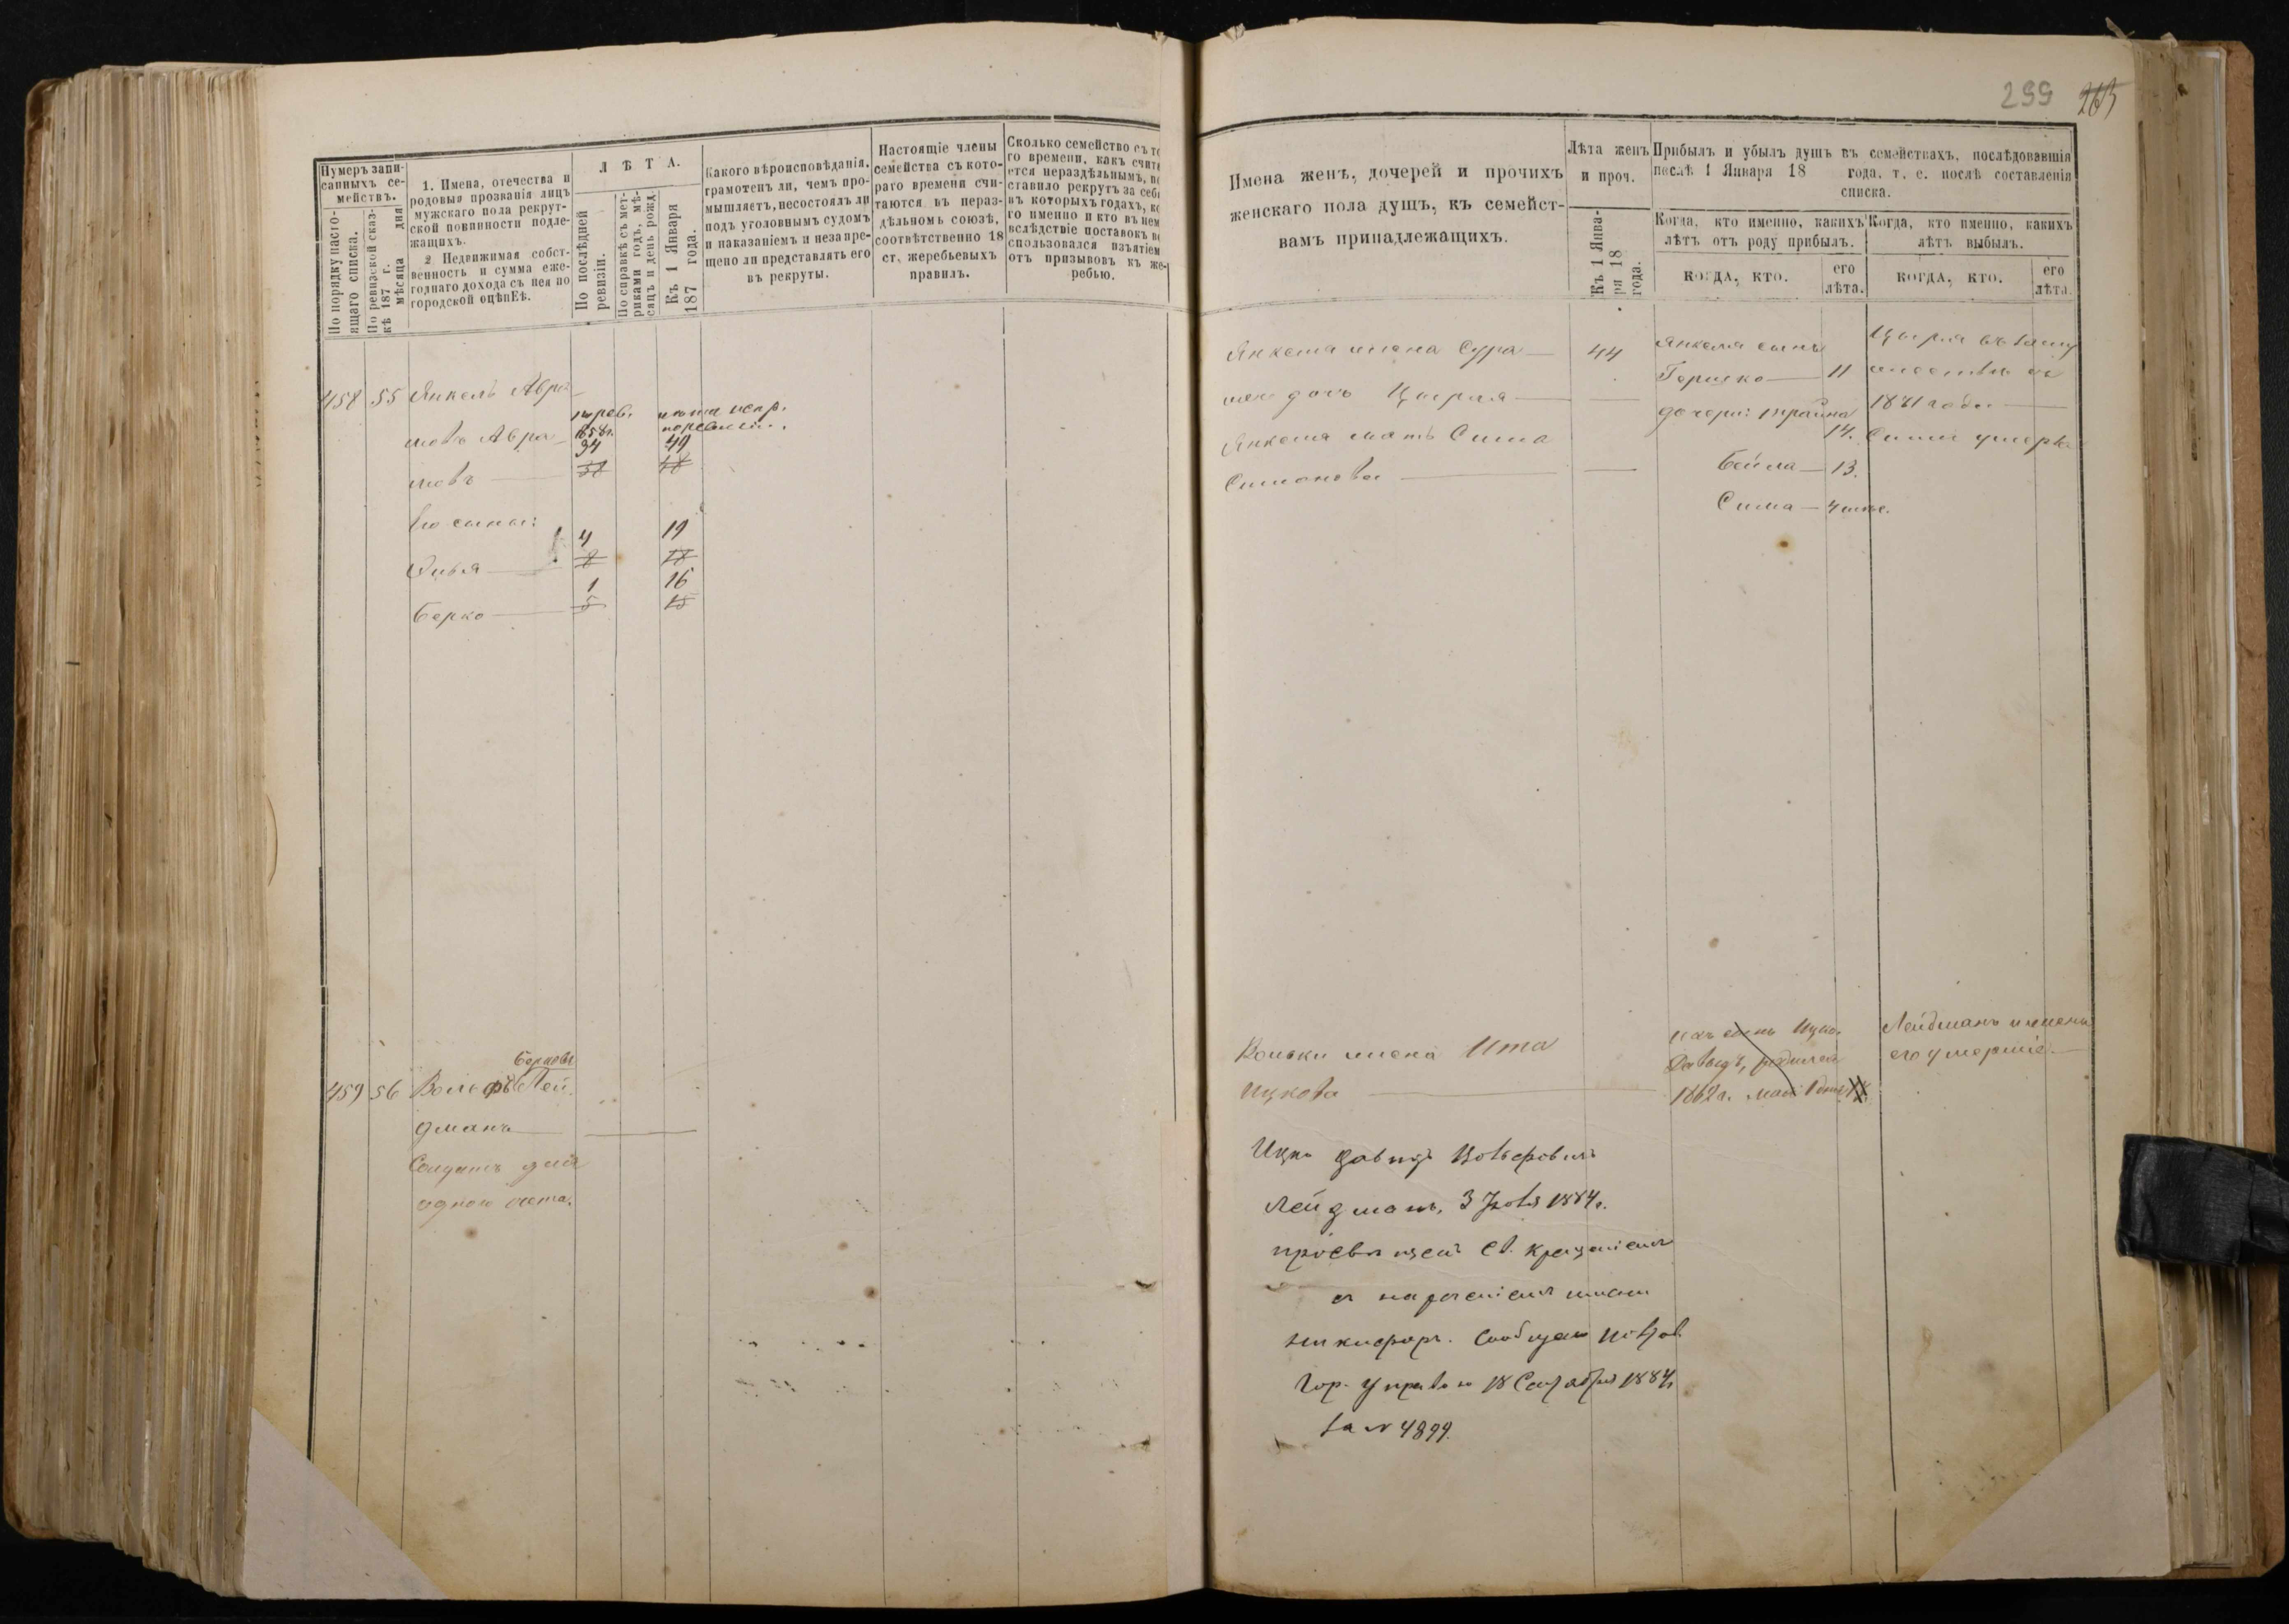 299 263
Нумеръ запи-
санныхъ се-
мействъ.
По порядку насто-
ящаго списка.
По ревизской сказ-
кѣ 187 г.
мѣсяца дня
1. Имена, отечества и
родовыя прозванія лицъ
мужскаго пола рекрут-
ской повинности подле-
жащихъ.
2 Недвижимая собст-
венность и сумма еже-
годнаго дохода съ нея по
городской оцѣнкѣ.
Л Ѣ Т А.
По послѣдней
ревизіи.
По справкѣ съ мет-
риками годъ, мѣ-
сяцъ и день рожд.
Къ 1 Января
187 года.
Какого вѣроисповѣданія,
грамотенъ ли, чемъ про-
мышляетъ, несостоялъ ли
подъ уголовнымъ судомъ
и наказаніемъ и незапре-
щено ли представлять его
въ рекруты.
Настоящіе члены
семейства съ кото-
раго времени счи-
таются въ нераз-
дѣльномъ союзѣ,
соотвѣтственно 18
ст. жеребьевыхъ
правилъ.
Сколько семейство съ то
го времени, какъ счита
ется нераздѣльнымъ, по
ставило рекрутъ за себя
въ которыхъ годахъ, ко
го именно и кто въ нем
вслѣдствіе поставокъ во
спользовался изъятіем
отъ призывовъ къ же-
ребью.
458 55 Янкель Абра-
мовъ Абра-
мовъ
10 рев. 1858 г. лѣта испр. по ревизіи.
34 49
38 48
Его сыны:
4 19
Эилья 8 18
1 16
Берко 5 15
459 56 Вольфъ Берковъ Лей-
дманъ
Солдатъ для
одного счета.
Имена женъ, дочерей и прочихъ
женскаго пола душъ, къ семейст-
вамъ принадлежащихъ.
Лѣта женъ
и проч.
Къ 1 Янва-
ря 18
года.
Прибылъ и убылъ душъ въ семействахъ, послѣдовавшія
послѣ 1 Января 18 года, т. е. послѣ составленія
списка.
Когда, кто именно, какихъ
лѣтъ отъ роду прибылъ.
Когда, кто именно, какихъ
лѣтъ выбылъ.
КОГДА, КТО. его лѣта. КОГДА, КТО. его лѣта.
Янкеля жена Сура 44
дочь Цырля
Янкеля мать Сима
Симонова
Янкеля сынъ
Гершко 11
дочери: Трайна
14.
Бейла 13.
Сима 4 мѣс.
Цырля въ замуж
1881 года
Сима умерла
Вольки жена Ита
Ицкова
ихъ сынъ Ицко-
Давыдъ, родился
1862 г. мая 1 дня
Лейдманъ и жена
его умершіе.
Ицко Давидъ Вольфовичъ
Лейдманъ, 3 1884 г.
просвѣщенъ Св. крещеніемъ
съ нареченіемъ имени
Никифоръ. Сообщено
Гор. Управою 18 Сентября 1884 г.
за № 4899.